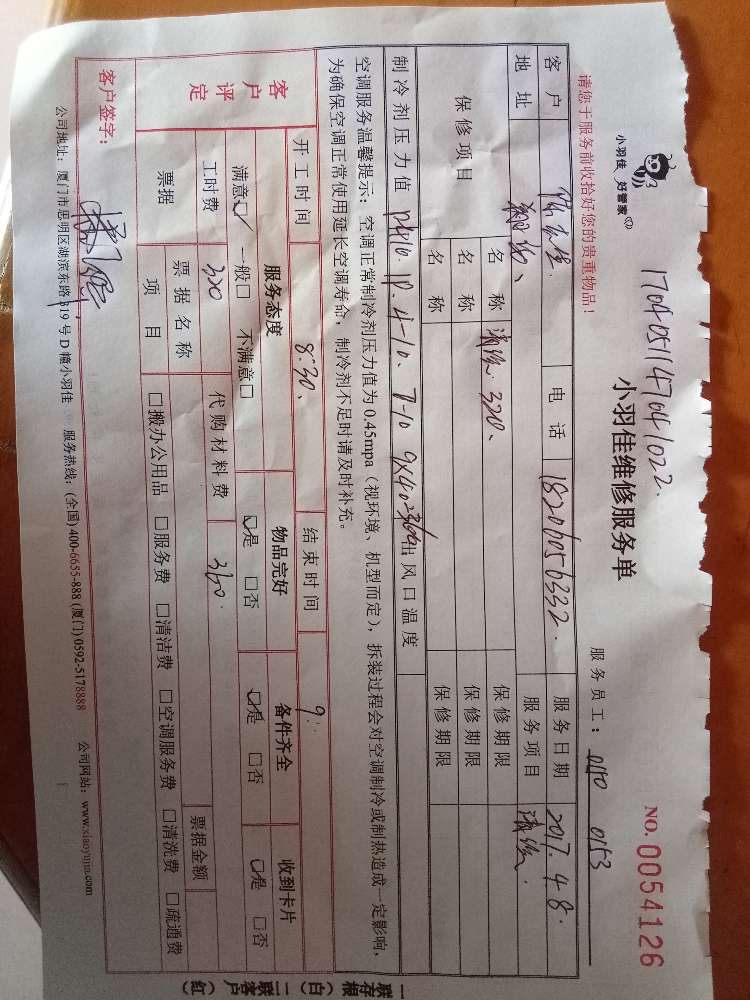 小羽佳 好管家
1704051147041022.
小羽佳维修服务单
NO. 0054126
请您于服务前收拾好您的贵重物品!
服务员工: 0140 0153
客户 陈先生. 电话 18206056332. 服务日期 2017.4.8.
地址 服务项目 清洗.
保修项目 名称 清洗.320、 保修期限
名称 保修期限
名称 保修期限
制冷剂压力值 出风口温度
空调服务温馨提示: 空调正常制冷剂压力值为0.45mpa(视环境、机型而定),拆装过程会对空调制冷或制热造成一定影响,
为确保空调正常使用延长空调寿命,制冷剂不足时请及时补充。
开工时间 8:30、 结束时间 9:
客户评定 服务态度 物品完好 备件齐全 收到卡片
满意☑ 一般□ 不满意□ ☑是 □否 ☑是 □否 ☑是 □否
工时费 320 代购材料费 360.
票据 票据名称 票据金额
项目 □搬办公用品 □服务费 □清洁费 □空调服务费 □清洗费 □疏通费
客户签字:
公司地址: 厦门市思明区湖滨东路319号D幢小羽佳 服务热线: (全国)400-6655-888 (厦门)0592-5178888 公司网站: www.xiaoyujia.com
一联存根(白) 二联客户(红)